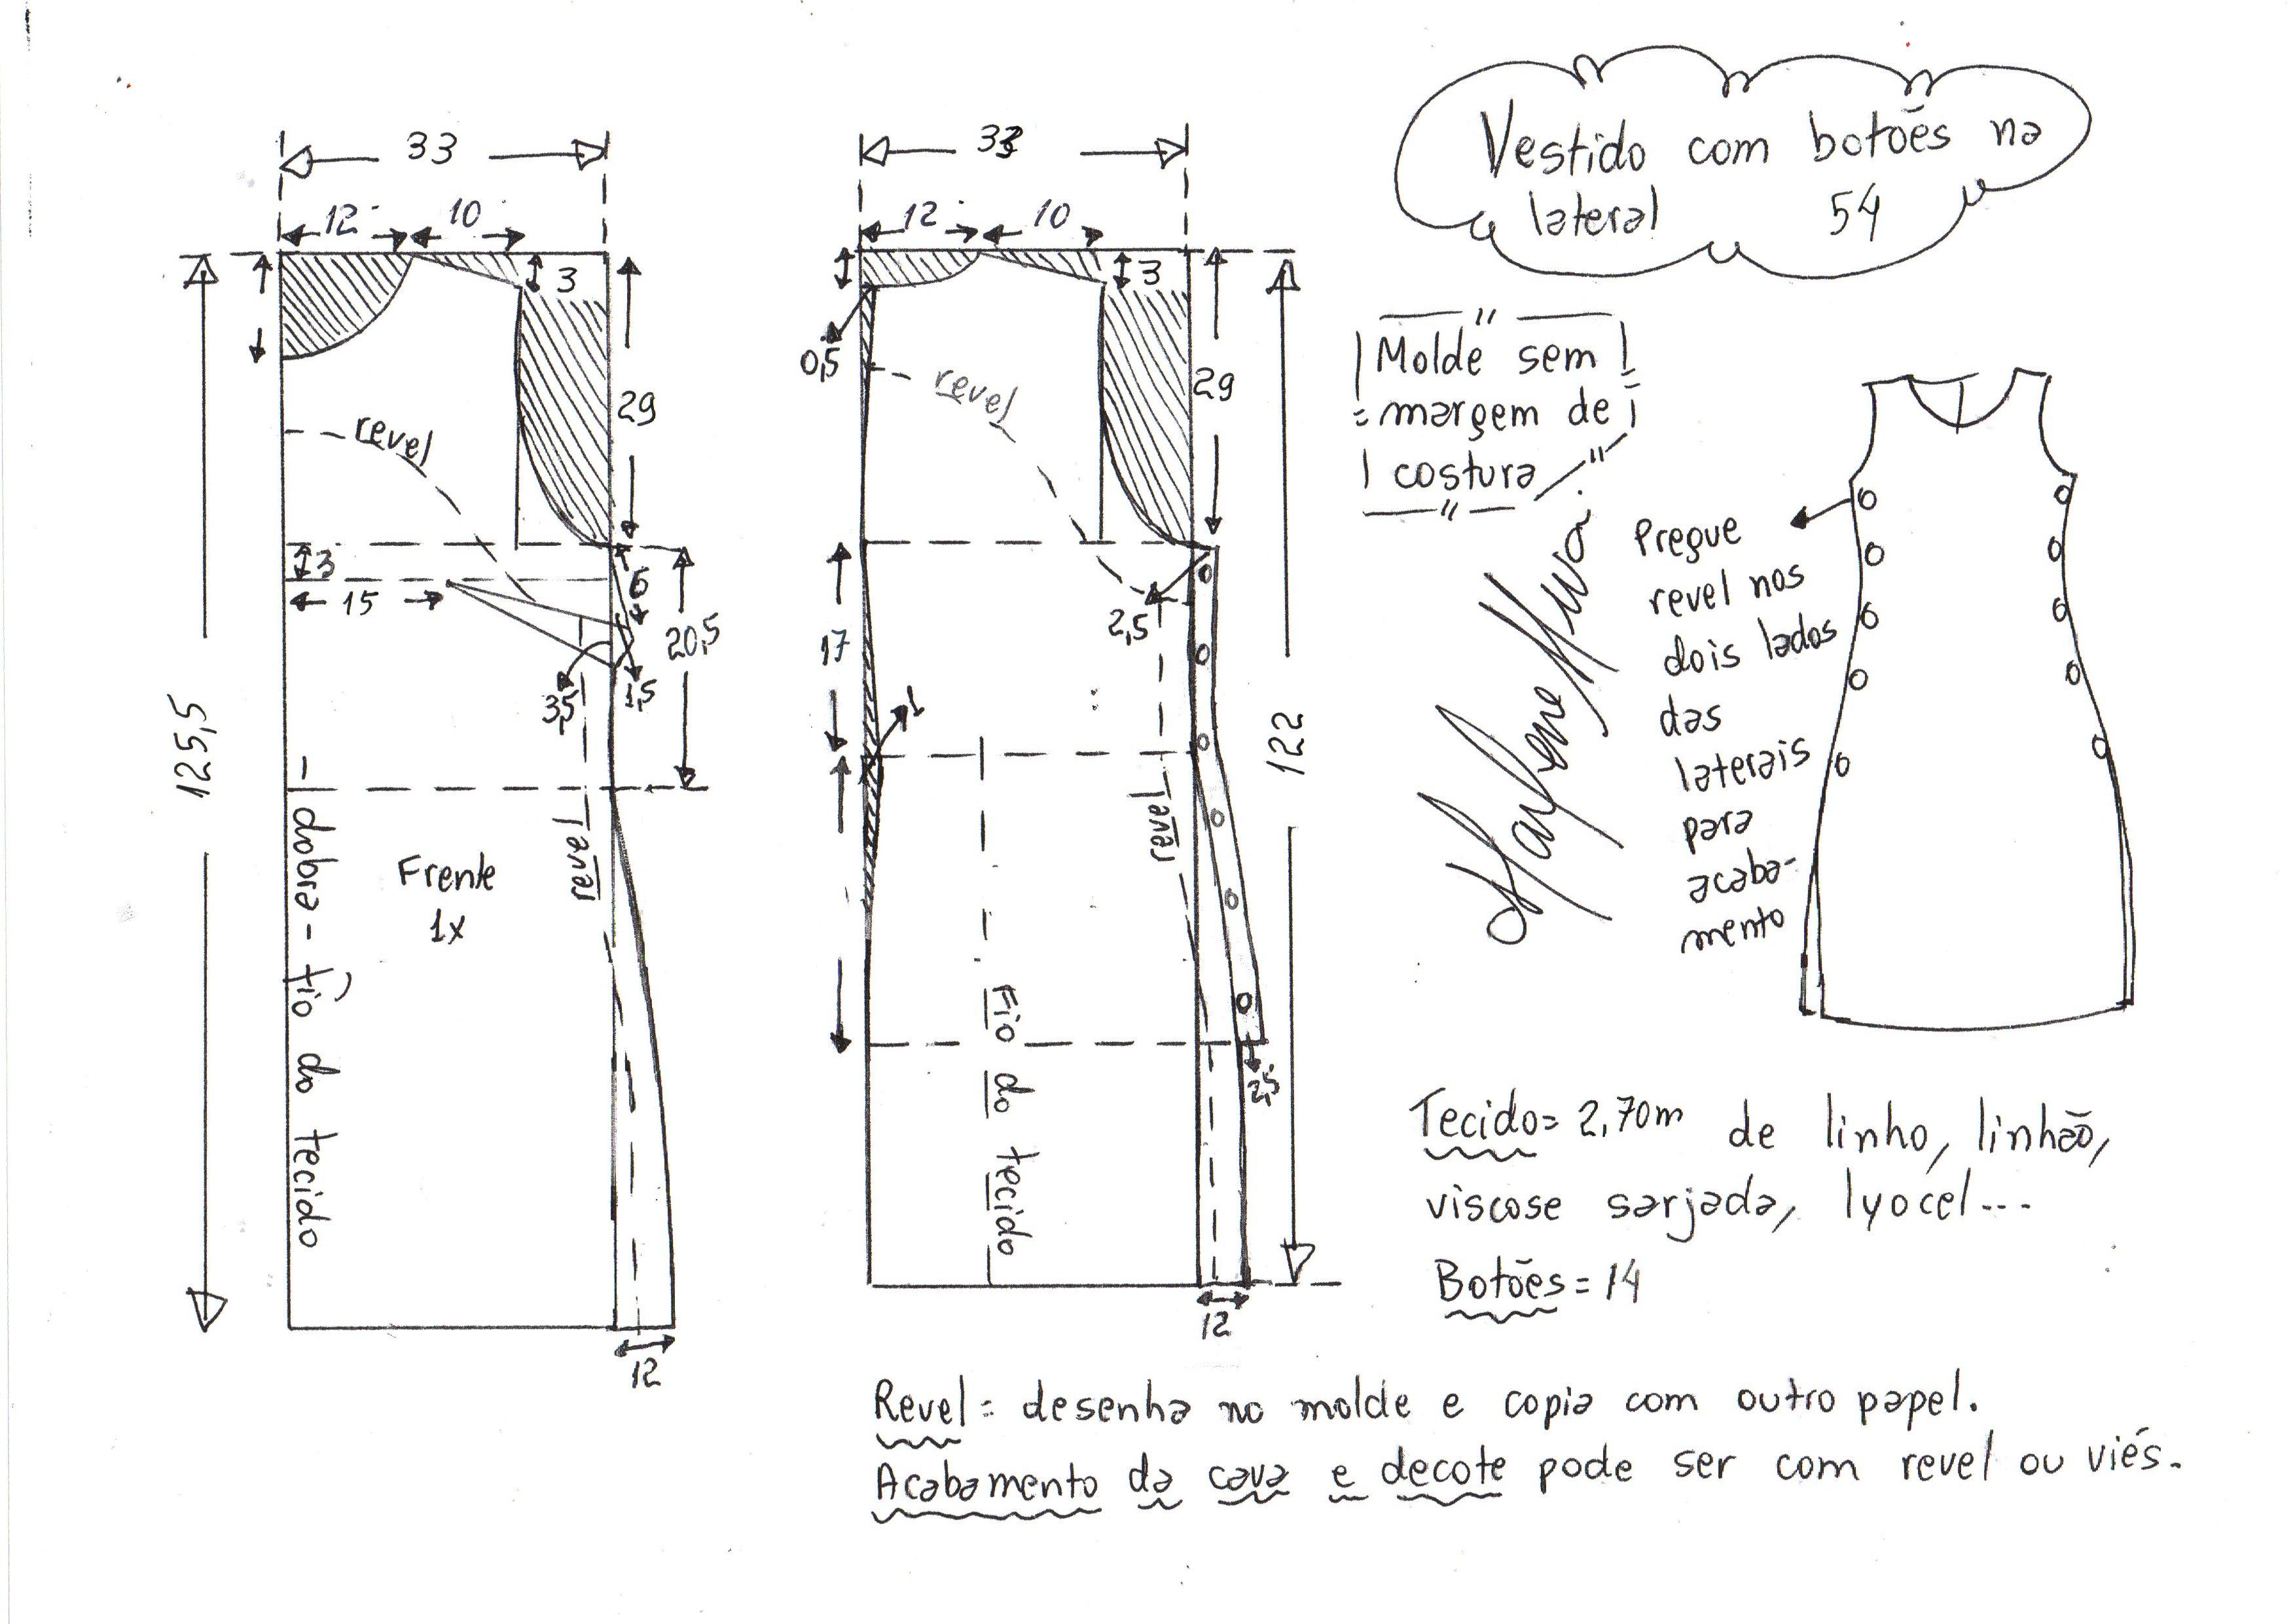 Vestido com botões na
lateral 54
33
12 10
3
29
revel
3
15
6
20,5
3,5
1,5
125,5
revel
Frente
1x
dobra - fio do tecido
12
33
12 10
3
0,5
29
revel
2,5
17
1
122
revel
Fio do tecido
2,5
12
Molde sem
margem de
costura
Marlene
Pregue
revel nos
dois lados
das
laterais
para
acaba-
mento
Tecido= 2,70m de linho, linhão,
viscose sarjada, lyocel...
Botões = 14
Revel= desenha no molde e copia com outro papel.
Acabamento da cava e decote pode ser com revel ou viés.